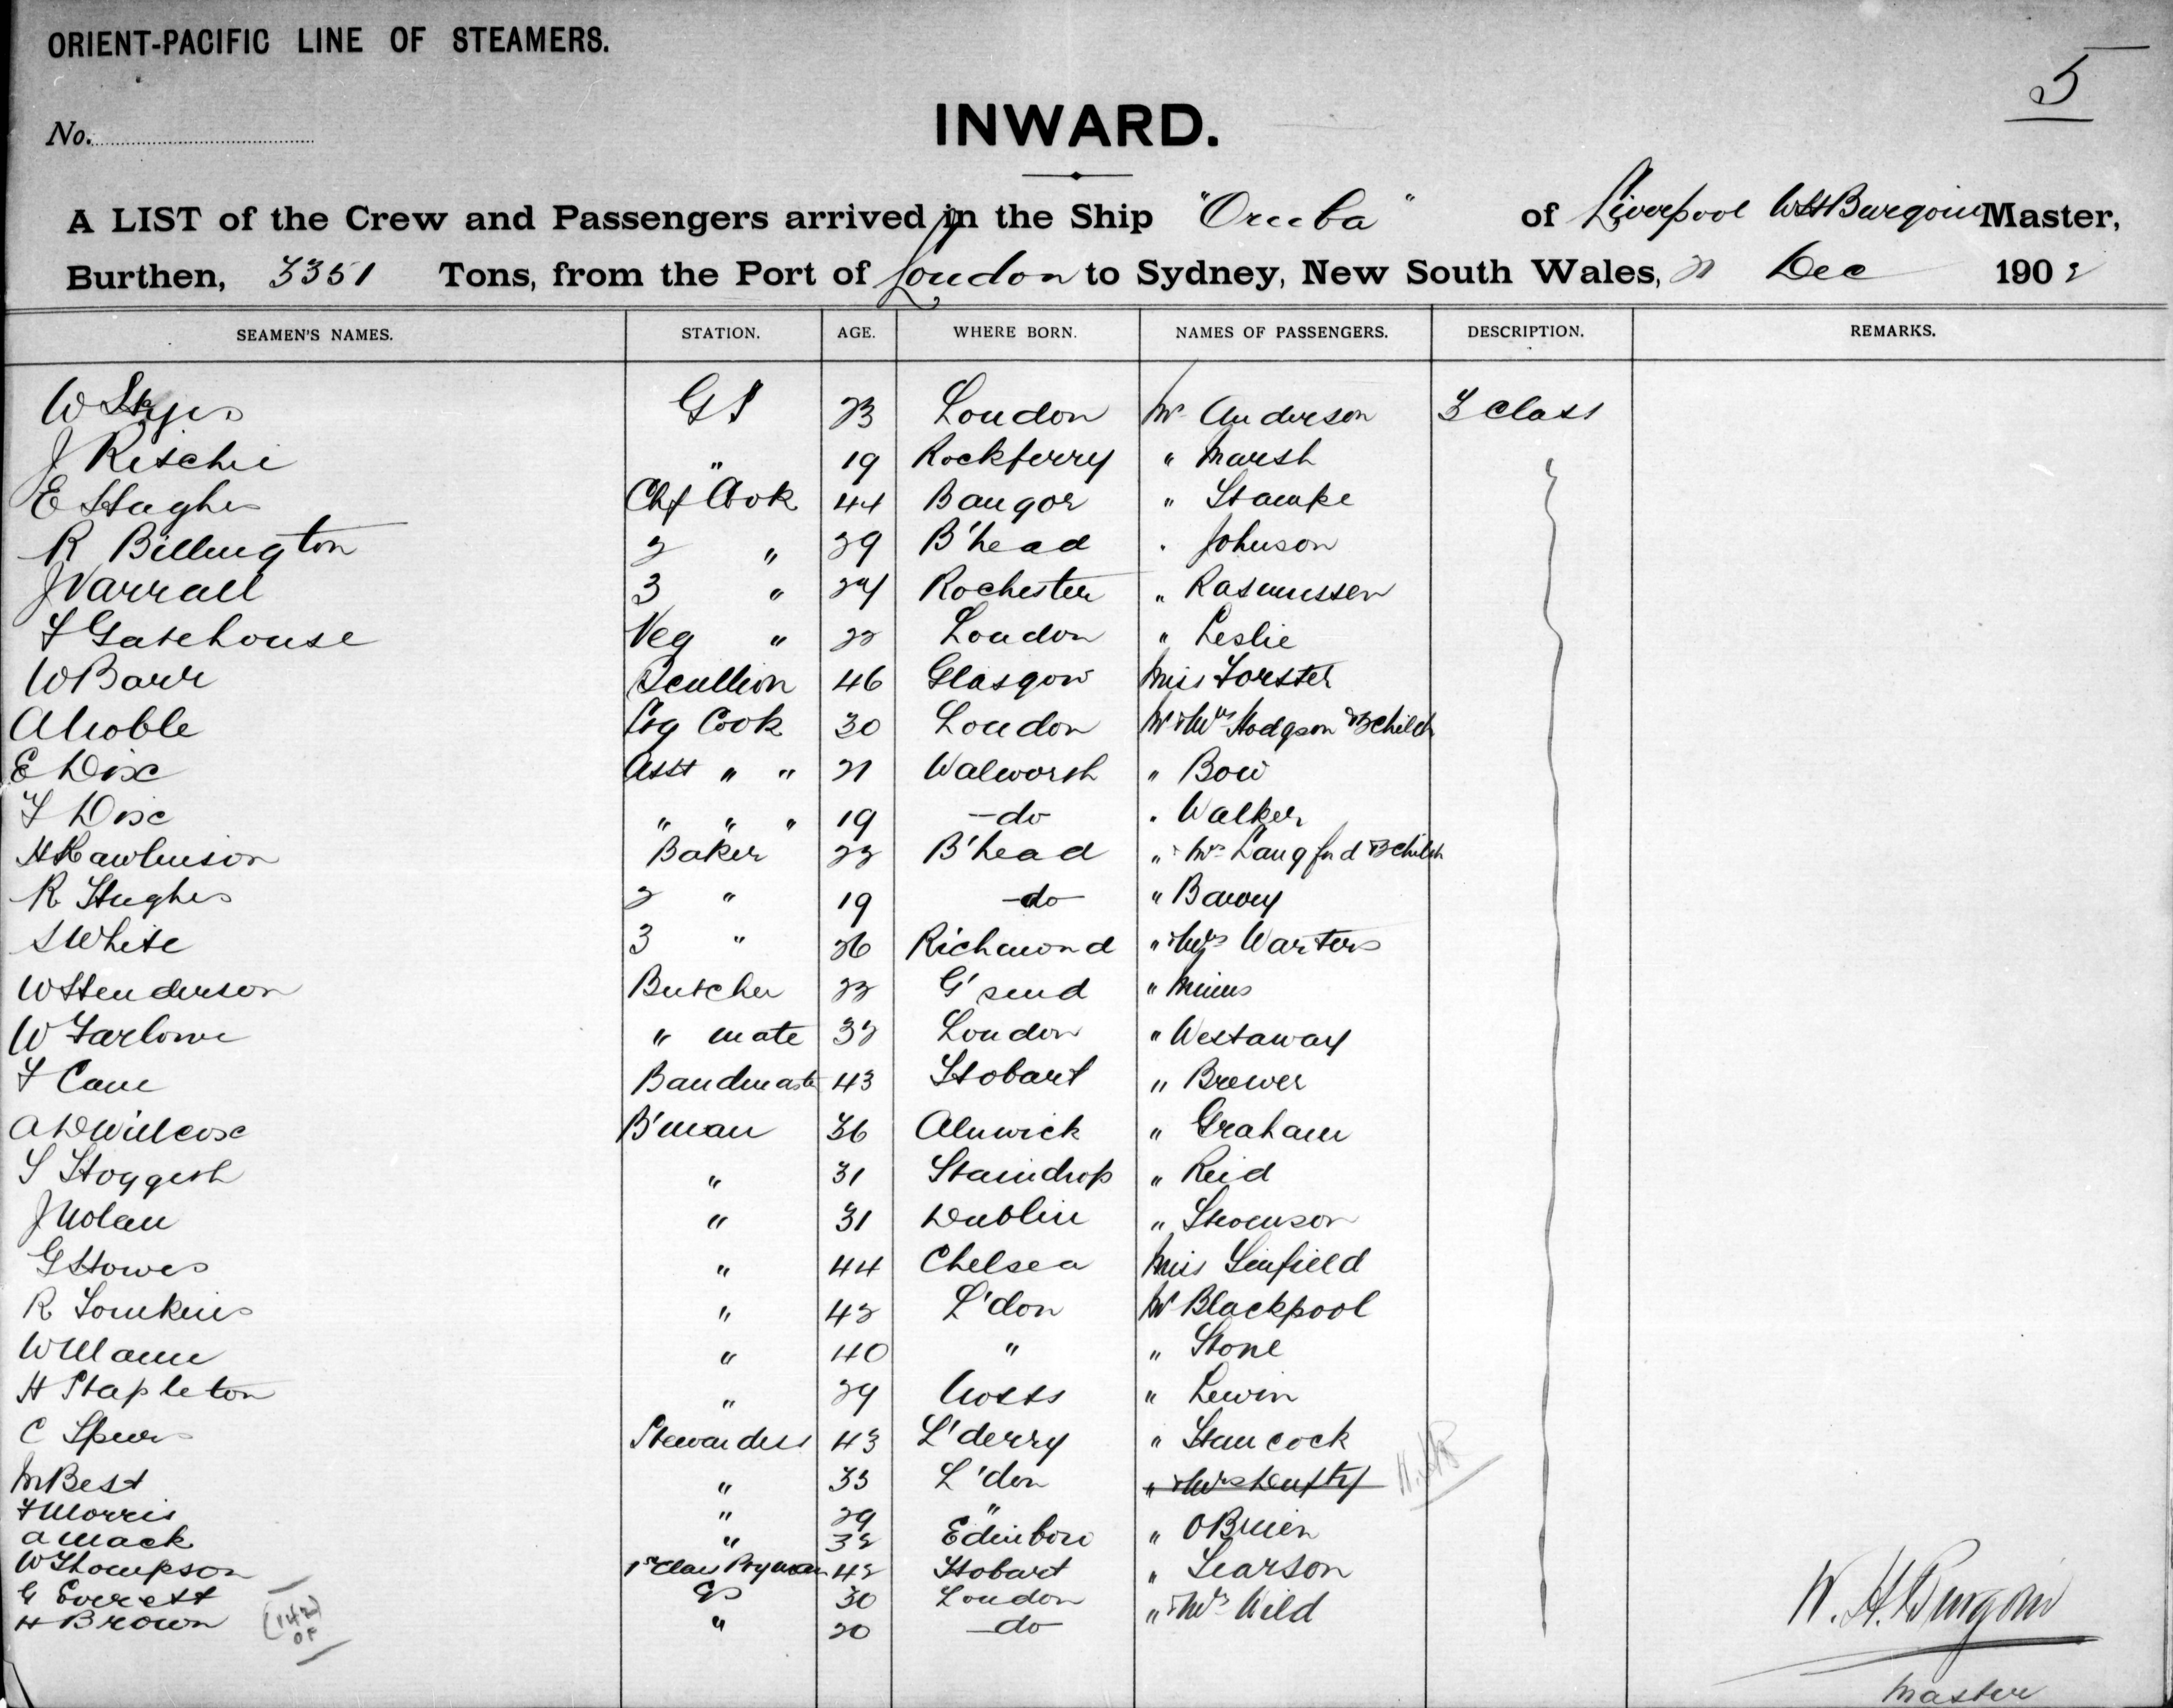 ORIENT-PACIFIC LINE OF STEAMERS.
5
No.
INWARD.
A LIST of the Crew and Passengers arrived in the Ship "Oruba" of Liverpool WH Burgoine Master,
Burthen, 3351 Tons, from the Port of London to Sydney, New South Wales, 21 Dec 1902
SEAMEN'S NAMES. STATION. AGE. WHERE BORN. NAMES OF PASSENGERS. DESCRIPTION. REMARKS.
W GS 23 London Mr Anderson 3 Class
J Ritchie " 19 Rockferry " Marsh
E Hughes Chf Cook 44 Bangor " Stampe
R Billington 2 " 29 B'head " Johnson
J Varrall 3 " 24 Rochester " Rasmussen
F Gatehouse Veg " 22 London " Leslie
W Barr Scullion 46 Glasgow Miss Forster
A Noble Cook 30 London Mr & Mrs Hodgson & 3 Childn
E Dix Asst " " 21 Walworth " Bow
F Dix " " " 19 -do- " Walker
H Rawlinson Baker 22 B'head " & Mrs Langford & 3 Childn
R Hughes 2 " 19 -do- "
S White 3 " 26 Richmond " & Mrs Warters
W Henderson Butcher 23 G'send "
W Farlowe " mate 32 London " Westaway
F Cane Bandmaster 43 Hobart " Brewer
A D Willcox B'man 36 Alnwick " Graham
S Hoggeth " 31 Staindrop " Reid
J Nolan " 31 Dublin " Stevenson
G Howes " 44 Chelsea Miss Linfield
R Tomkins " 42 L'don Mr Blackpool
W Mann " 40 " " Stone
H Stapleton " 29 Notts " Lewin
C Spurs Stewardess 43 L'derry " Hancock
M Best " 33 L'don " & Mrs Dufty
F Morris " 29 "
A Mack " 32 Edinboro " OBrien
W Thompson 1st Class Pryman 42 Hobart " Searson
G Everett GS 30 London " & Mrs Wild
H Brown " 20 -do-
(142)
W. H. Burgoine
Master